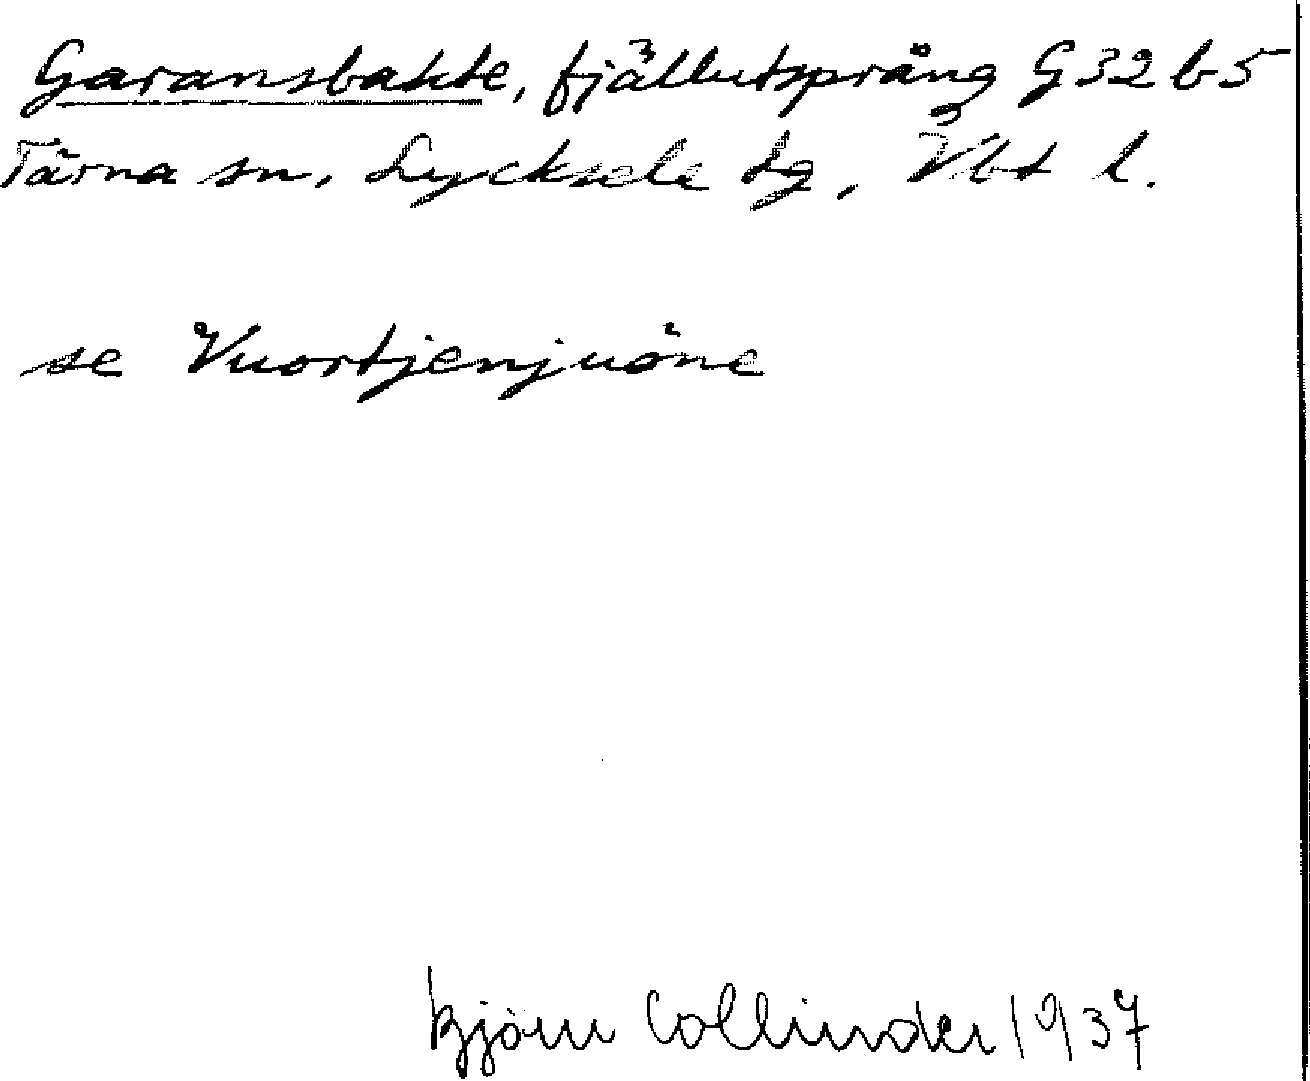 Garansbakte, fjällutsprång G32b5
Tärna sn, Lycksele tg, Vbt l.
se Vuortjenjuöne
Björn Collinder 1937